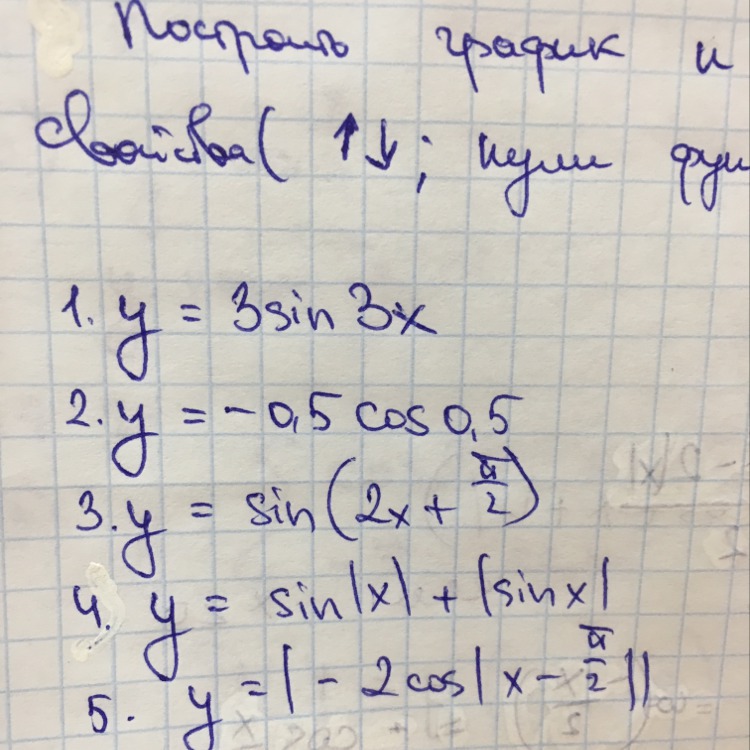 Построить график и
свойства( ↑↓; нули фун
1. y = 3sin 3x
2. y = -0,5 cos 0,5
3. y = sin(2x + π/2)
4. y = sin|x| + |sin x|
5. y = |-2cos|x - π/2||